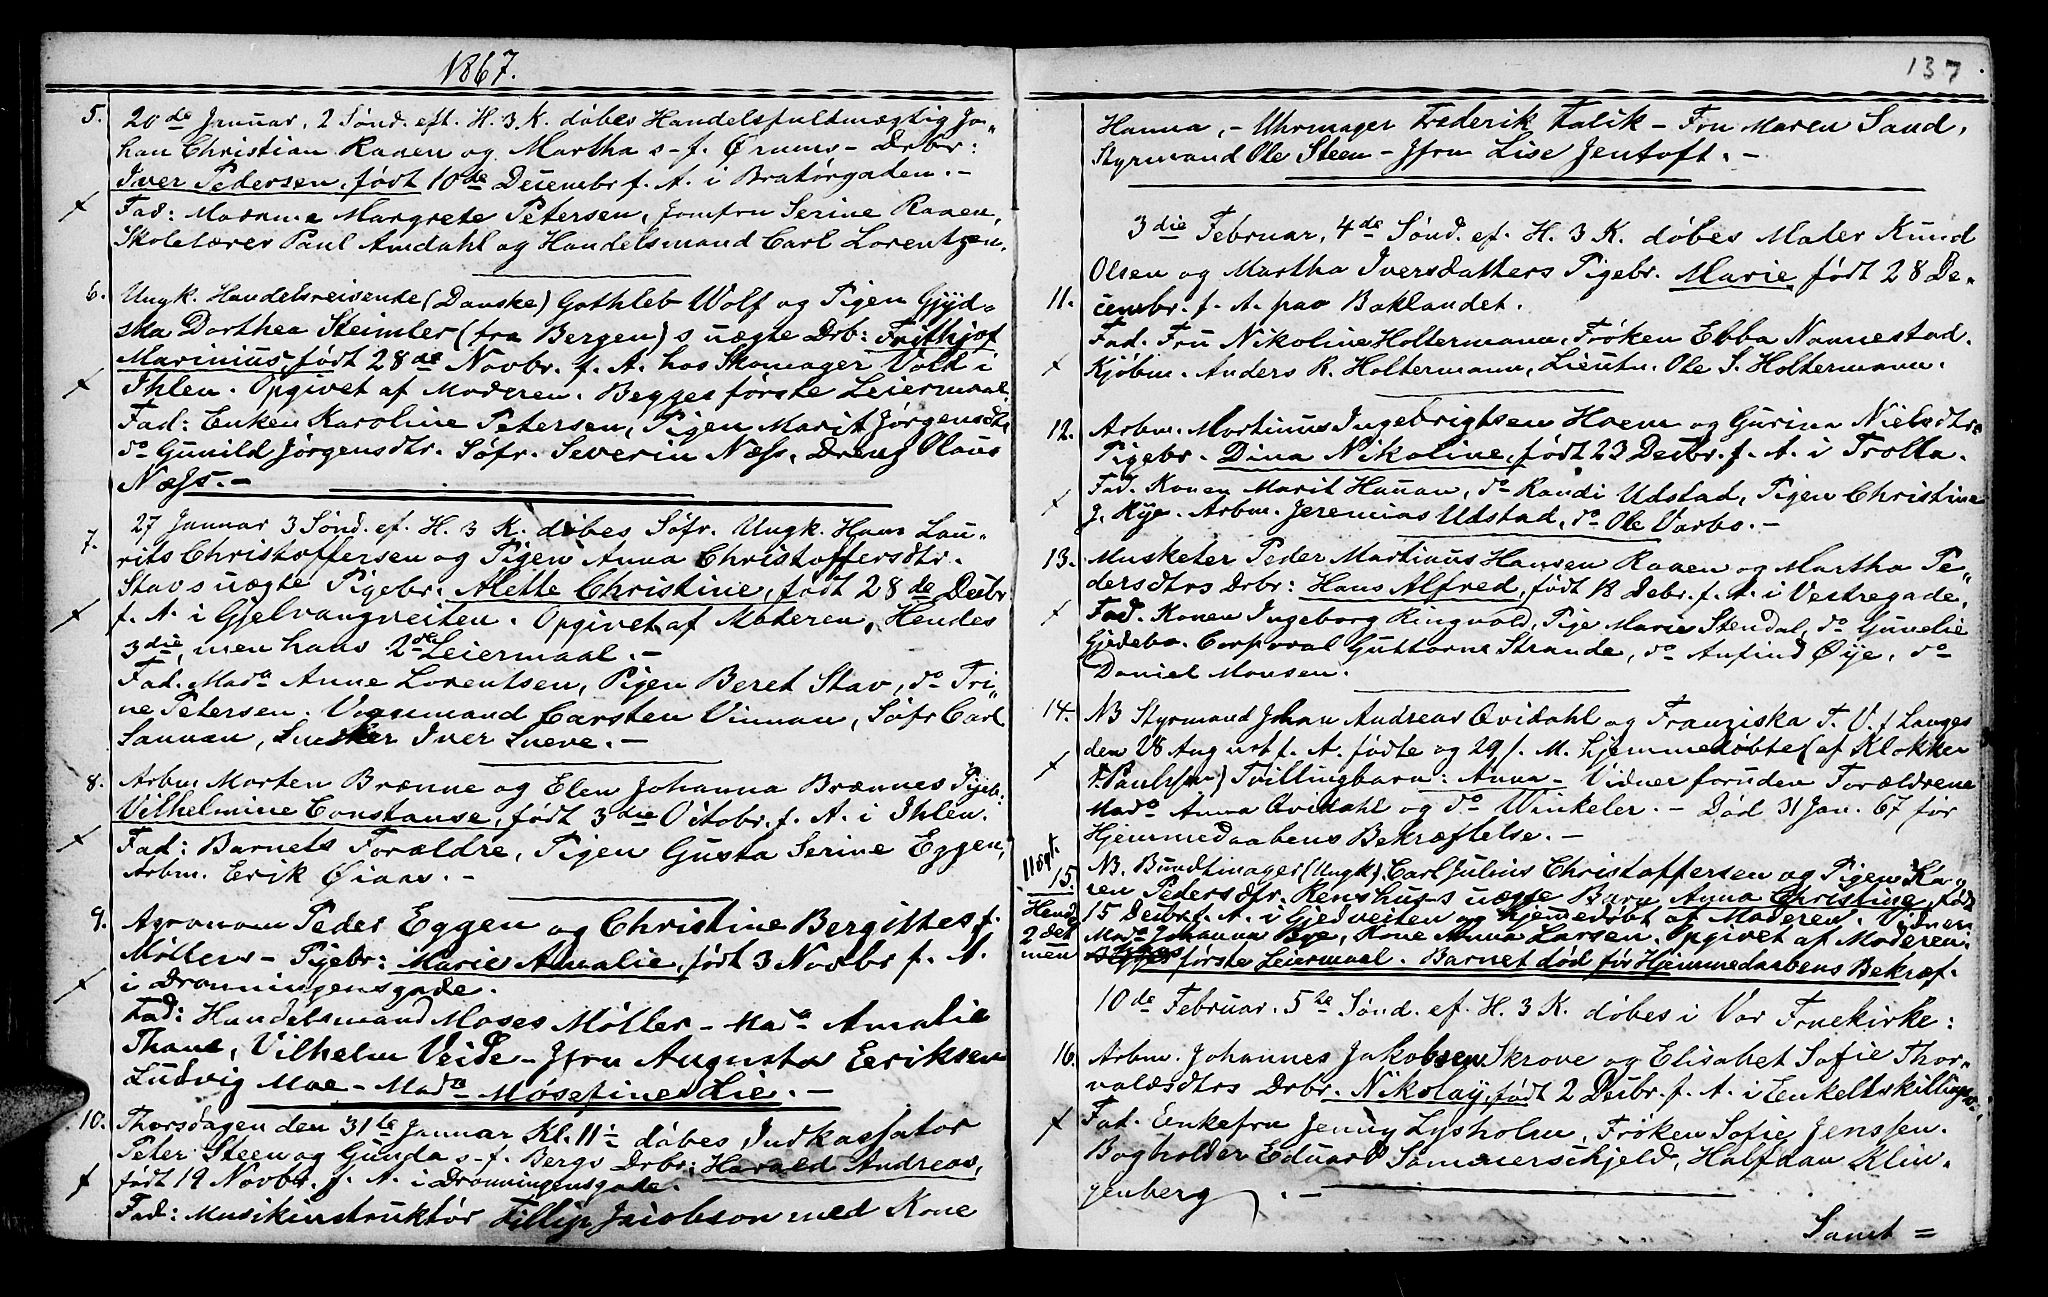 1867.
5. 20de Januar, 2 Sønd. eft. H. 3 K. døbes Handelsfuldmægtig Jo„
han Christian Raaen og Martha s-f. Ørums- Drbr:
Iver Pedersen, født 10de Decembr f. A. i Bratørgaden.-
Fad: Madame Margrete Petersen, Jomfru Serine Raaen,
Skolelærer Paul Amdahl og Handelsmand Carl Lorentzen.
6. Ungk. Handelsreisende (Danske) Gothleb Wolf og Pigen
ska Dorthea Steimler (fra Bergen) s uægte Drb: Frithjof
Marinius, født 28de Novbr. f. A. hos Skomager Volk i
Ihlen. Opgivet af Moderen. Begges første Leiermaal.
Fad: Enken Karoline Petersen, Pigen Marit Jørgensdtr,
do Gunild Jørgensdtr. Søfr. Severin Næss, Dreng Olaus
Næss.-
27 Januar 3 Sønd. ef. H. 3 K. døbes Søfr. Ungk. Hans Lau„
7. rits Christoffersen og Pigen Anna Christoffersdtr.
Stavs uægte Pigebr. Alette Christine, født 28de Decbr
f. A. i Gjelvangveiten. Opgivet af Moderen, Hendes
3die, men hans 2det Leiermaal.-
Fad. Mada Anne Lorentsen, Pigen Beret Stav, do Tri„
ne Petersen. Vognmand Carsten Vinnan, Søfr Carl
Sannan, Snedker Iver Sneve.-
8. Arbm Morten Brænne og Elen Johanna Brænnes Pigeb:
Vilhelmine Constanse, født 3die Octobr. f. A. i Ihlen.
Fad: Barnets Forældre, Pigen Gusta Serine Eggen,
Arbm. Erik Øiaas.-
9. Agronom Peder Eggen og Christine Bergittes f.
Møllers- Pigebr: Marie Amalie, født 3 Novbr f. A.
i Dronningensgade.
Fad: Handelsmand Moses Møller- Mada Amalie
Thane, Vilhelm Veide- Jfru Augusta Eeriksen
Ludvig Moe- Mada Mosefine Lie.-
10. Thorsdagen den 31te Januar Kl. 11½ døbes Indkassator
Peter Steen og Gunda s-f. Bergs Drbr: Harald Andreas,
født 19 Novbr. f. A. i Dronningensgade.
Fad: Musikinstruktør Fillip Jacobson med Kone
137
Hanna,- Uhrmager Frederik Falik- Fru Maren Sand,
Styrmand Ole Steen- Jfru Lise Jentoft.-
3die Februar, 4de Sønd. ef. H. 3 K. døbes Maler Knud
Olsen og Martha Iversdatters Pigebr. Marie, født 28 De„
11. cembr. f. A. paa Baklandet.
Fad. Fru Nikoline Holtermann, Frøken Ebba Nannestad.
Kjøbm. Anders R. Holtermann, Lieutn. Ole S. Holtermann.
12. Arbm. Martinus Ingebrigtsen Hoem og Gurina Nielsdtrs
Pigebr. Dina Nikoline, født 23 Decbr. f. A. i Trolla.
Fad. Konen Marit Hanan, do Randi Udstad, Pigen Christine
J. Rye. Arbm. Jeremias Udstad, do Ole Varbo.-
13. Musketer Peder Martinus Hansen Raaen og Martha Pe„
dersdtrs Drbr: Hans Alfred, født 18 Debr. f. A. i Vestregade,
Fad. Konen Ingeborg Ringvold, Pige Marie Stendal, do Gunelie
Gjedebo. Corporal Guttorm Strande, do Anfind Øye, do
Daniel Monsen.
14. NB Styrmand Johan Andreas Qvidahl og Franziska T. V. f Langes
den 28 August f. A. fødte og 29 s. M. hjemmedøbte (af Klokker
Paulssen) Tvillingbarn: Anna- Vidner foruden Forældrene
Mada Anna Qvidahl og do Winkeler.- Død 31 Jan. 67 før
Hjemmedaabens Bekræftelse.-
15. NB. Bundtmager (Ungk) Carl Julius Christoffersen og Pigen Ka„
ren Pedersdtr. Renshus s uægte Barn Anna Christine, født
15 Decbr. f. A. i Gjedveiten og hjemedøbt af Moderen. Vidner
Mada Johanna Bye, Kone Anna Larsen. Opgivet af Moderen.
Hend. 2det men første Leiermaal. Barnet død før Hjemmedaabens Bekræf.
10de Februar. 5te Sønd. ef. H. 3 K. døbes i Vor Fruekirke:
16. Arbm. Johannes Jakobsen Skrove og Elisabet Sofie Thor„
valdsdtrs Drbr. Nikolay, født 2 Decbr. f. A. i Enkeltskilling
Fad. Enkefru Jenny Lysholm, Frøken Sofie Jenssen.
Bogholder Eduard Sommerschjeld, Halfdan Klin„
genberg.-
Samt =